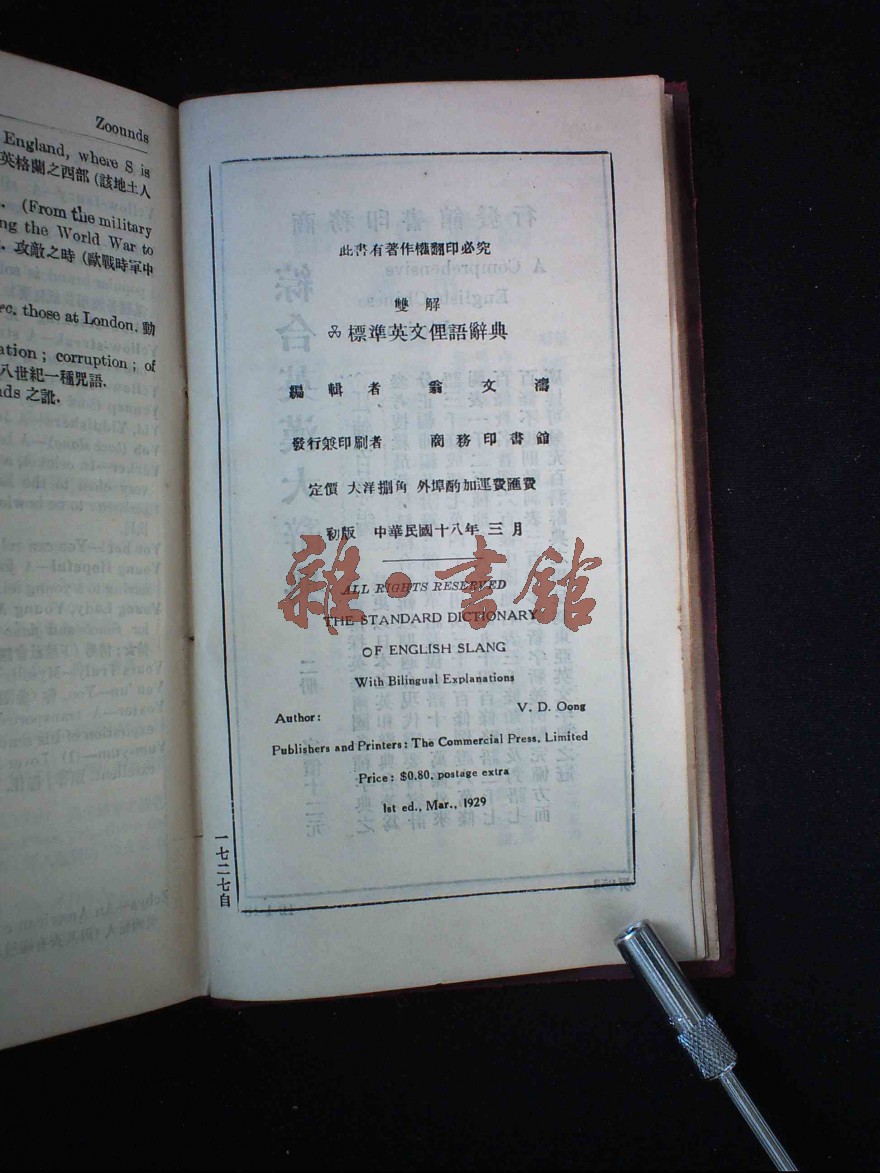 Zoounds
England, where S is
英格蘭之西部 (該地土人
. (From the military
ng the World War to
. 攻敵之時 (歐戰時軍中
rc. those at London. 動
ation ; corruption ; of
八世紀一種咒語.
nds 之訛.
此書有著作權翻印必究
雙解
標準英文俚語辭典
編輯者 翁文濤
發行兼印刷者 商務印書館
定價 大洋捌角 外埠酌加運費匯費
初版 中華民國十八年三月
雜·書館
ALL RIGHTS RESERVED
THE STANDARD DICTIONARY
OF ENGLISH SLANG
With Bilingual Explanations
Author: V. D. Oong
Publishers and Printers: The Commercial Press, Limited
Price: $0.80, postage extra
1st ed., Mar., 1929
一七二七自